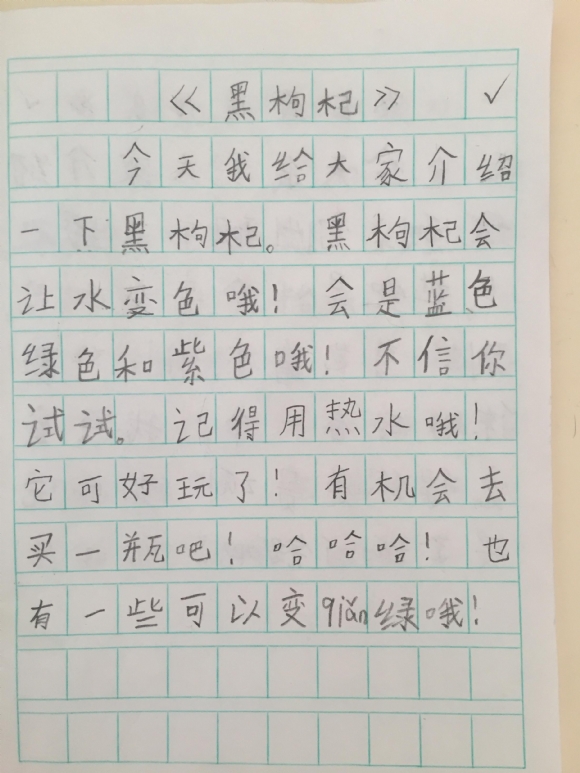 《黑枸杞》 ✓
今天我给大家介绍
一下黑枸杞。黑枸杞会
让水变色哦！会是蓝色、
绿色和紫色哦！不信你
试试。记得用热水哦！
它可好玩了！有机会去
买一瓶吧！哈哈哈！也
有一些可以变qiǎn绿哦！